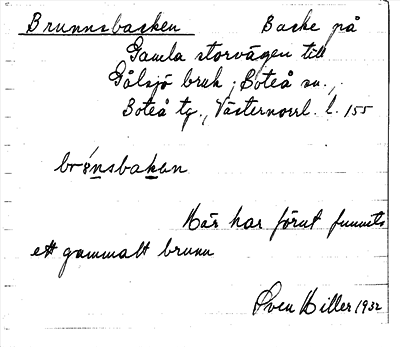 Brunnsbacken Backe på
Gamla storvägen till
Gålsjö bruk, Boteå sn.,
Boteå tg., Västernorrl. l. 155
brønsbakan
Här har förut funnits
ett gammalt brunn
Sven Hiller 1932